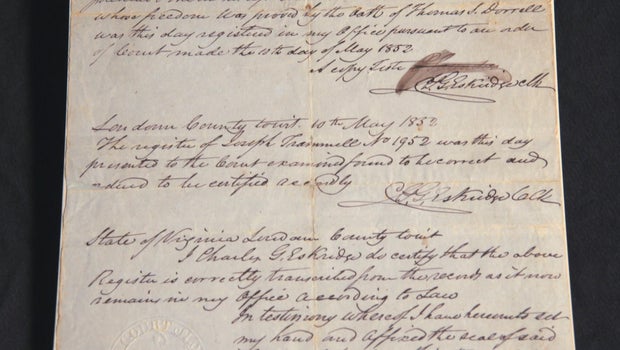 whose freedom was proved by the oath of Thomas S. Dorrell
was this day registered in my Office pursuant to an order
of Court made the 10th day of May 1852
A copy Teste
C. G. Eskridge Clk
Loudoun County court 10th May 1852
The register of Joseph Trammell No 1952 was this day
presented to the Court examined found to be correct and
ordered to be certified accordingly
C. G. Eskridge Clk
State of Virginia Loudoun County court
I Charles G. Eskridge do certify that the above
Register is correctly transcribed from the records as it now
remains in my Office according to Law
In testimony whereof I have hereunto set
my hand and affixed the seal of said